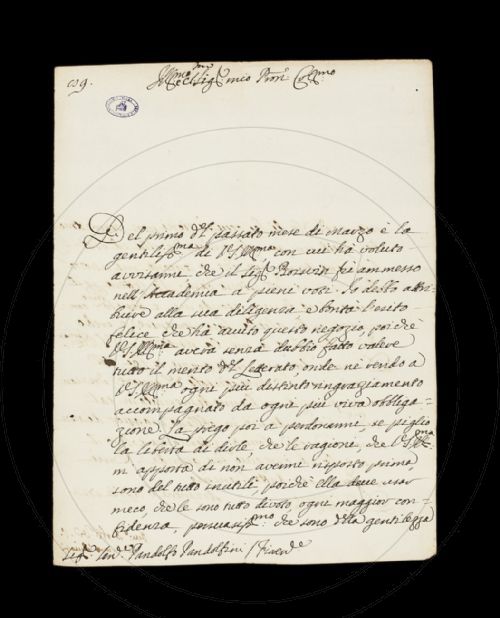 159.
Ill.mo Sig.r mio P.ron Col.mo
Del primo del passato mese di marzo è la
gentiliss.ma di V.S.Ill.ma con cui ha voluto
avvisarmi che il Sig.r fù ammesso
nell'Accademia a pieni voti. Io dello attri-
buire alla sua diligenza e bontà l'esito
felice che ha avuto questo negozio, poiche
V.S.Ill.ma averà senza dubbio fatto valere
tutto il merito del Letterato, onde ne rendo a
V.S.Ill.ma ogni più distinto ringraziamento
accompagnato da ogni più viva obbliga=
zione. La prego poi a perdonarmi, se piglio
la libertà di dirle, che le ragioni, che V.S.Ill.ma
m'apporta di non avermi risposto prima,
sono del tutto inutili, poiche ella deve usar
meco, che le sono tutto devoto, ogni maggior con-
fidenza, persuasiss.mo che sono della gentilezza
Sig.r Pandolfo Pandolfini